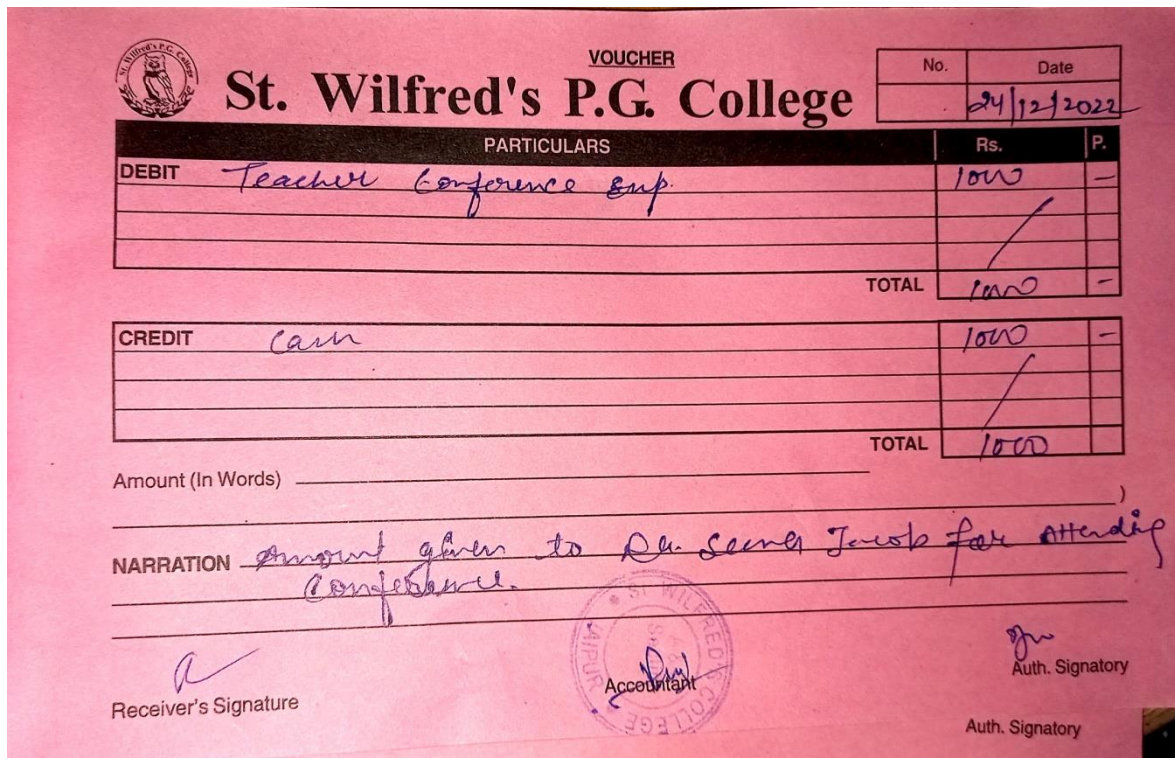 St. Wilfred's P.G. College
VOUCHER
St. Wilfred's P.G. College
No. Date
24/12/2022
PARTICULARS Rs. P.
DEBIT Teacher Conference Exp. 1000 –
TOTAL 1000 –
CREDIT Cash 1000 –
TOTAL 1000
Amount (In Words)
NARRATION Amount given to Dr. Seema Jacob for Attending
Conference.
ST WILFRED'S COLLEGE JAIPUR
Auth. Signatory
Accountant
Receiver's Signature
Auth. Signatory